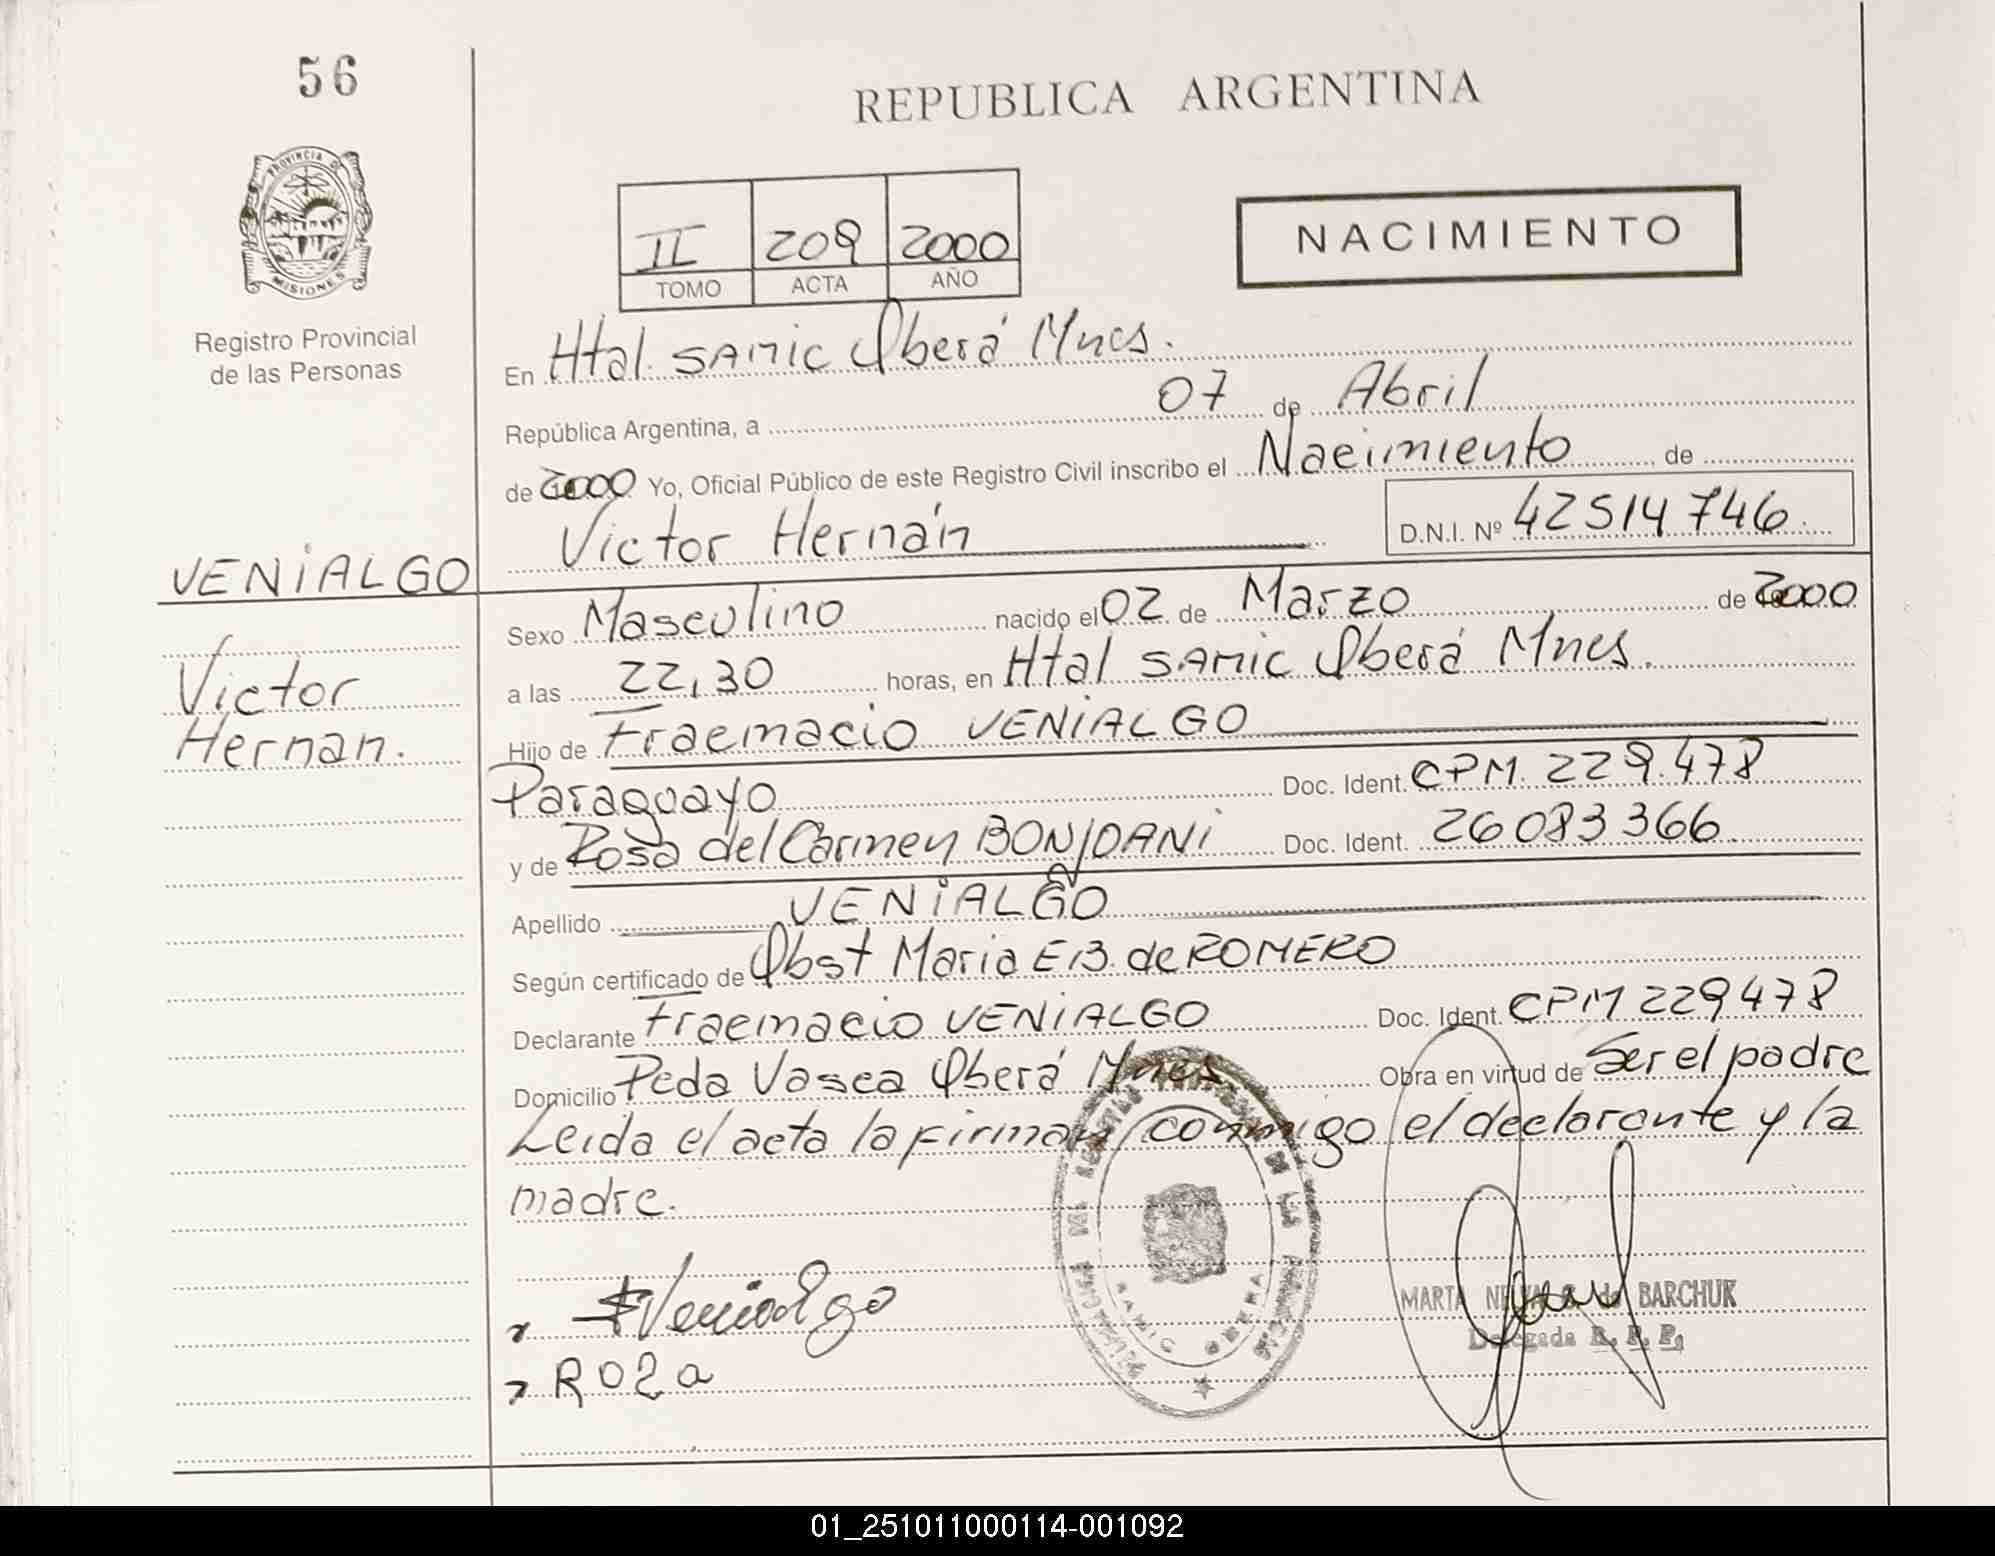 56
REPUBLICA ARGENTINA
PROVINCIA DE
MISIONES
Registro Provincial
de las Personas
II 209 2000
TOMO ACTA AÑO
NACIMIENTO
En Htal. SAMIC Oberá Mnes.
República Argentina, a 07 de Abril
de 2000 Yo, Oficial Público de este Registro Civil inscribo el Nacimiento de
Victor Hernán D.N.I. Nº 42514746
VENIALGO
Victor
Hernan.
Sexo Masculino nacido el 02 de Marzo de 2000
a las 22,30 horas, en Htal SAMIC Oberá Mnes.
Hijo de Fraemacio VENIALGO
Paraguayo Doc. Ident. CPM. 229.478
y de Rosa del Carmen BONJOANI Doc. Ident. 26083366
Apellido VENIALGO
Según certificado de Obst Maria E B. de ROMERO
Declarante Fraemacio VENIALGO Doc. Ident. CPM 229478
Domicilio Pcda Vasca Oberá Mnes Obra en virtud de Ser el padre
Leida el acta la firman conmigo el declarante y la
madre.
FVenialgo
ROSa
SAMIC OBERA
MARTA BARCHUK
Delegada R. P. P.
01_251011000114-001092